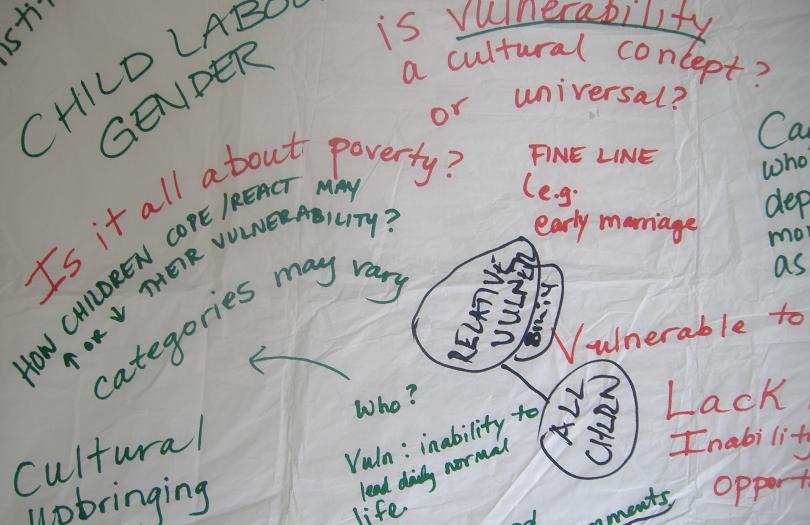 CHILD LABOU
GENDER
is vulnerability
a cultural concept?
or universal?
Is it all about poverty?
HOW CHILDREN COPE/REACT MAY
↑ OR ↓ THEIR VULNERABILITY?
categories may vary
FINE LINE
(e.g.
early marriage
Ca
who
dep
mo
as
RELATIVE
VULNER
BILITY
ALL
CHLRN
Vulnerable to
Lack
Inability
opport
Who?
Vuln: inability to
lead daily normal
life.
Cultural
Upbringing
mments